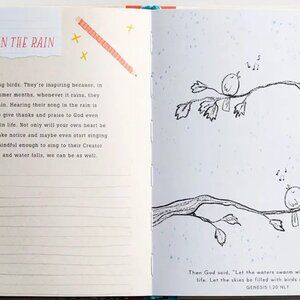 N THE RAIN
ng birds. They're inspiring because, in
mer months, whenever it rains, they
ain. Hearing their song in the rain is
give thanks and praise to God even
in life. Not only will your own heart be
ake notice and maybe even start singing
mindful enough to sing to their Creator
and water falls, we can be as well.
Then God said, "Let the waters swarm wi
life. Let the skies be filled with birds
GENESIS 1:20 NLT